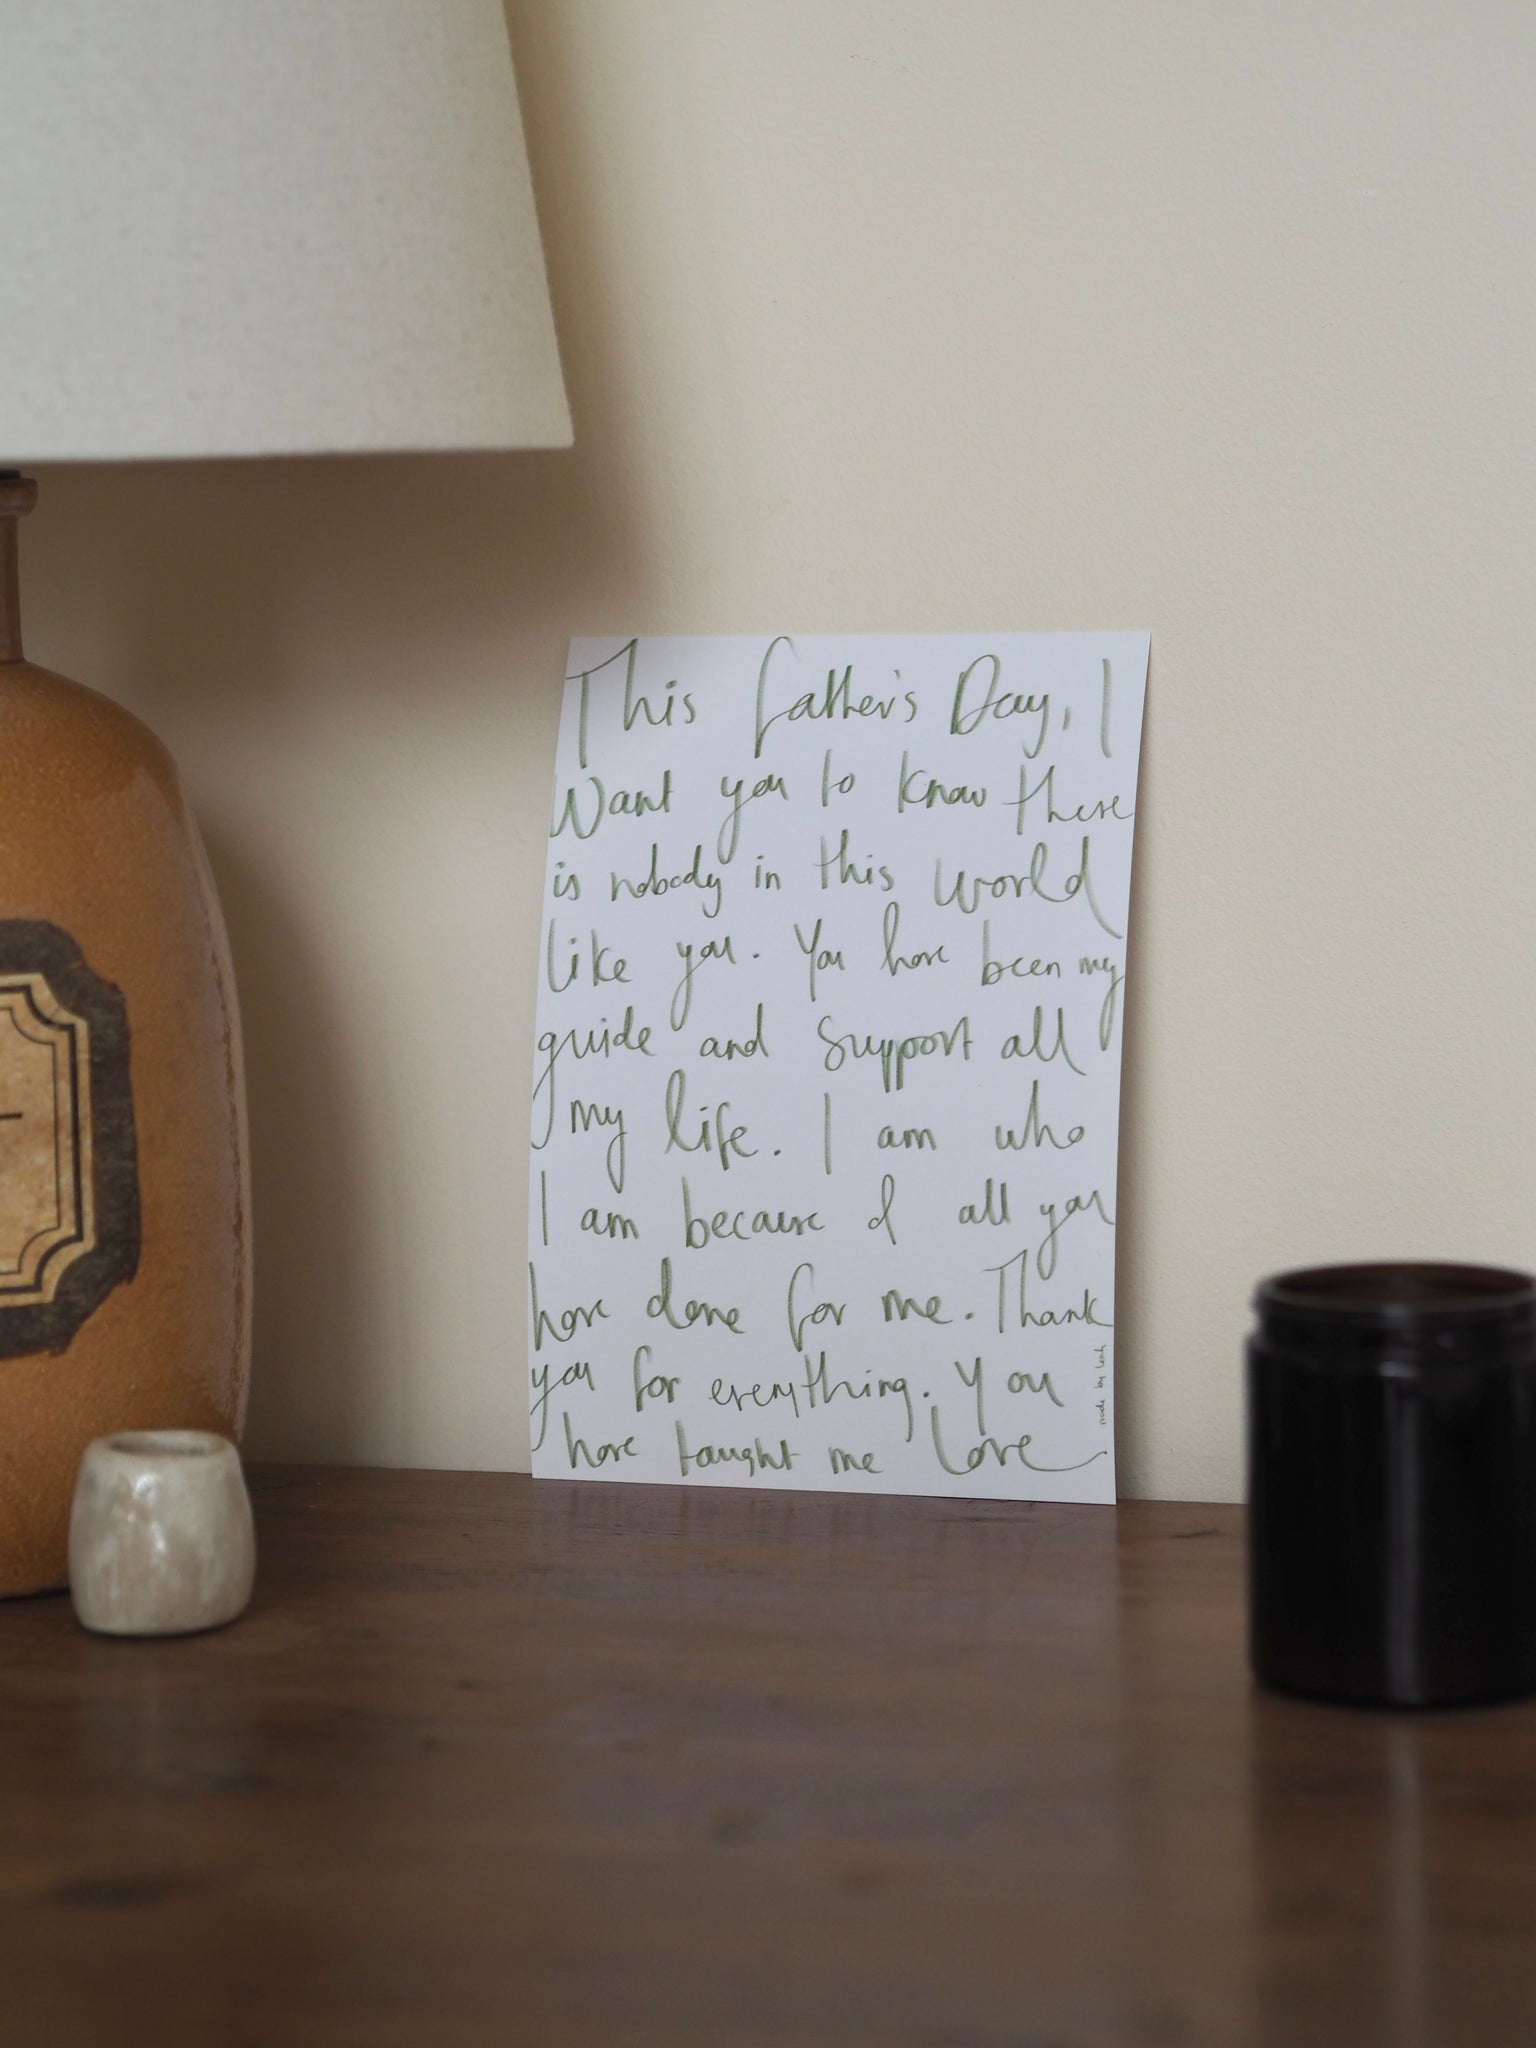 This Father's Day, I
Want you to know there
is nobody in this world
like you. You have been my
guide and support all
my life. I am who
I am because of all you
have done for me. Thank
you for everything. You
have taught me love
made by Leah